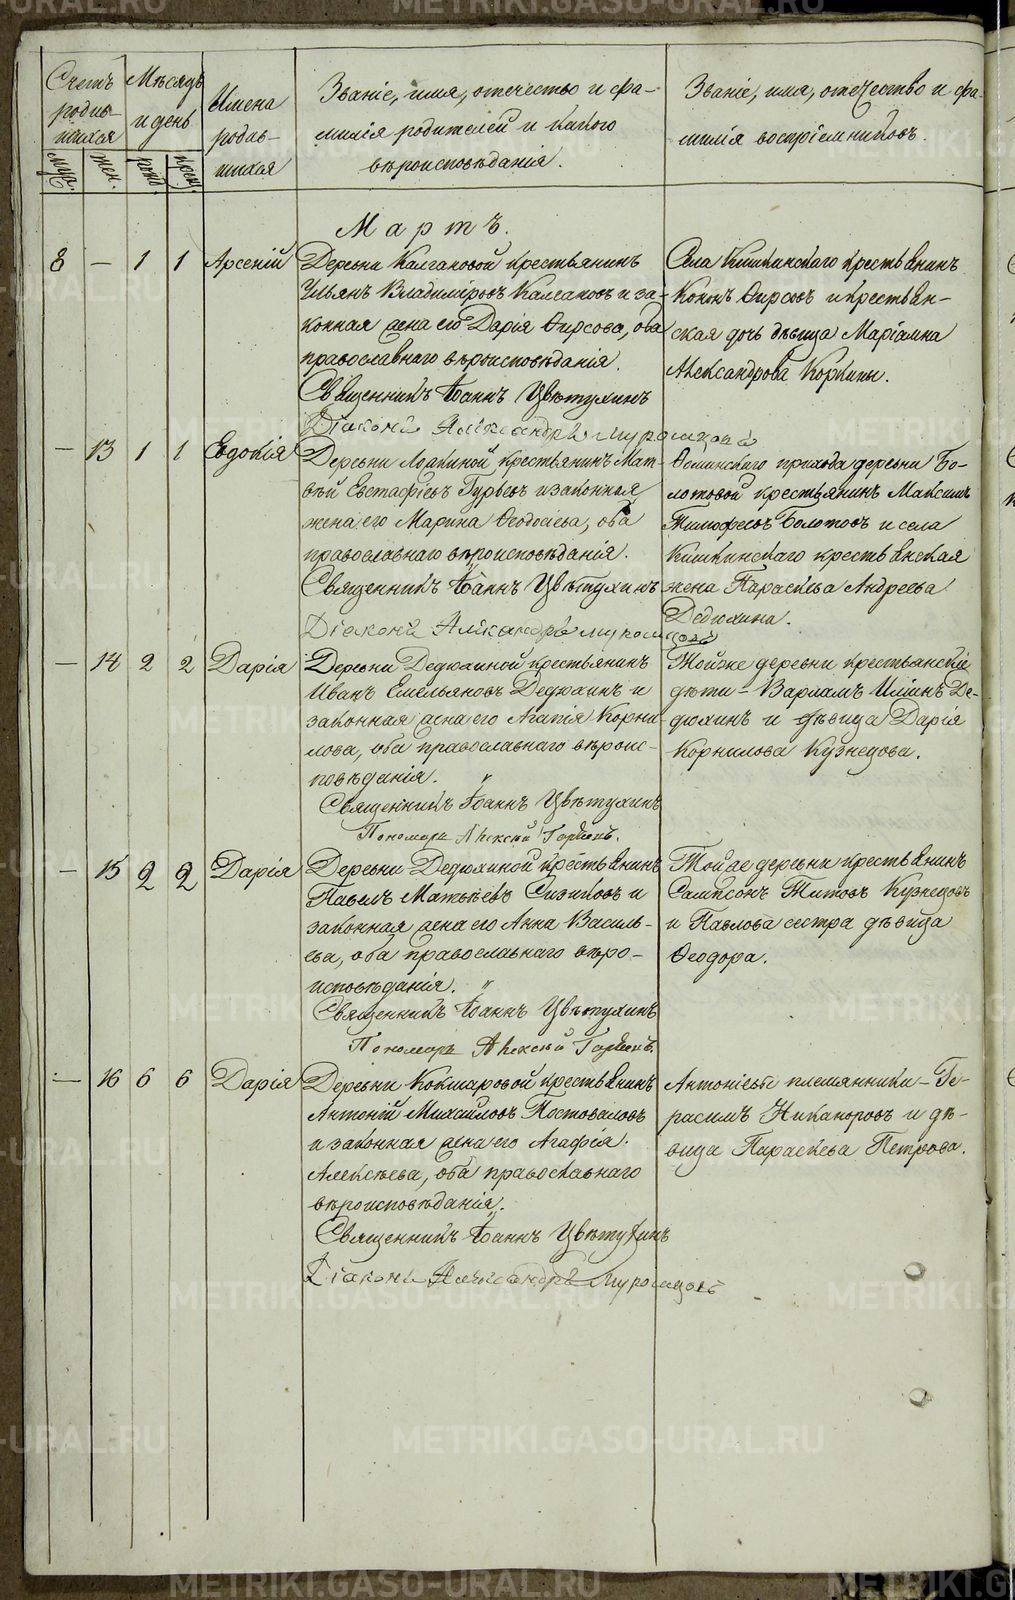 Счетъ родив-
шихся
муж.
жен.
Мѣсяцъ
и день
рожд.
крещ.
Имена
родив-
шихся
Званіе, имя, отечество и фа-
милія родителей и какого
вѣроисповѣданія.
Званіе, имя, отечество и фа-
милія воспріемниковъ.
Мартъ.
8 — 1 1 Арсеній
Деревни Калгановой крестьянинъ
Ульянъ Владиміровъ Калгановъ и за-
конная жена его Дарія Ѳирсова, оба
православнаго вѣроисповѣданія.
Священникъ Іоаннъ Цвѣтухинъ
Діаконъ Александръ
Села Кишкинскаго крестьянинъ
Кононъ Ѳирсовъ и крестьян-
ская дочь дѣвица Маріамна
Александрова Коркины.
— 13 1 1 Евдокія
Деревни крестьянинъ Мат-
вѣй Евстафіевъ Гурьевъ и законная
жена его Марина Ѳеодосіева, оба
православнаго вѣроисповѣданія.
Священникъ Іоаннъ Цвѣтухинъ
Діаконъ Александръ
прихода деревни Бо-
лотовой крестьянинъ Максимъ
Тимофеевъ Болотовъ и села
Кишкинскаго крестьянская
жена Параскева Андреева
Дедюхина.
— 14 2 2 Дарія
Деревни Дедюхиной крестьянинъ
Иванъ Емельяновъ Дедюхинъ и
законная жена его Агапія Корни-
лова, оба православнаго вѣроис-
повѣданія.
Священникъ Іоаннъ Цвѣтухинъ
Пономарь Алексѣй
Тойже деревни крестьянскіе
дѣти – Варлаамъ Илiинъ Де-
дюхинъ и дѣвица Дарія
Корнилова Кузнецова.
— 15 2 2 Дарія
Деревни Дедюхиной крестьянинъ
Павелъ Матвѣевъ Сизиковъ и
законная жена его Анна Василь-
ева, оба православнаго вѣро-
исповѣданія.
Священникъ Іоаннъ Цвѣтухинъ
Пономарь Алексѣй
Тойже деревни крестьянинъ
Сампсонъ Титовъ Кузнецовъ
и Павлова сестра дѣвица
Ѳеодора.
— 16 6 6 Дарія
Деревни Кокшаровой крестьянинъ
Антоній Михайловъ Постоваловъ
и законная жена его Агафія
Алексѣева, оба православнаго
вѣроисповѣданія.
Священникъ Іоаннъ Цвѣтухинъ
Діаконъ Александръ
Антоніевы племянники – Ге-
расимъ Никаноровъ и дѣ-
вица Параскева Петрова.
METRIKI.GASO-URAL.RU